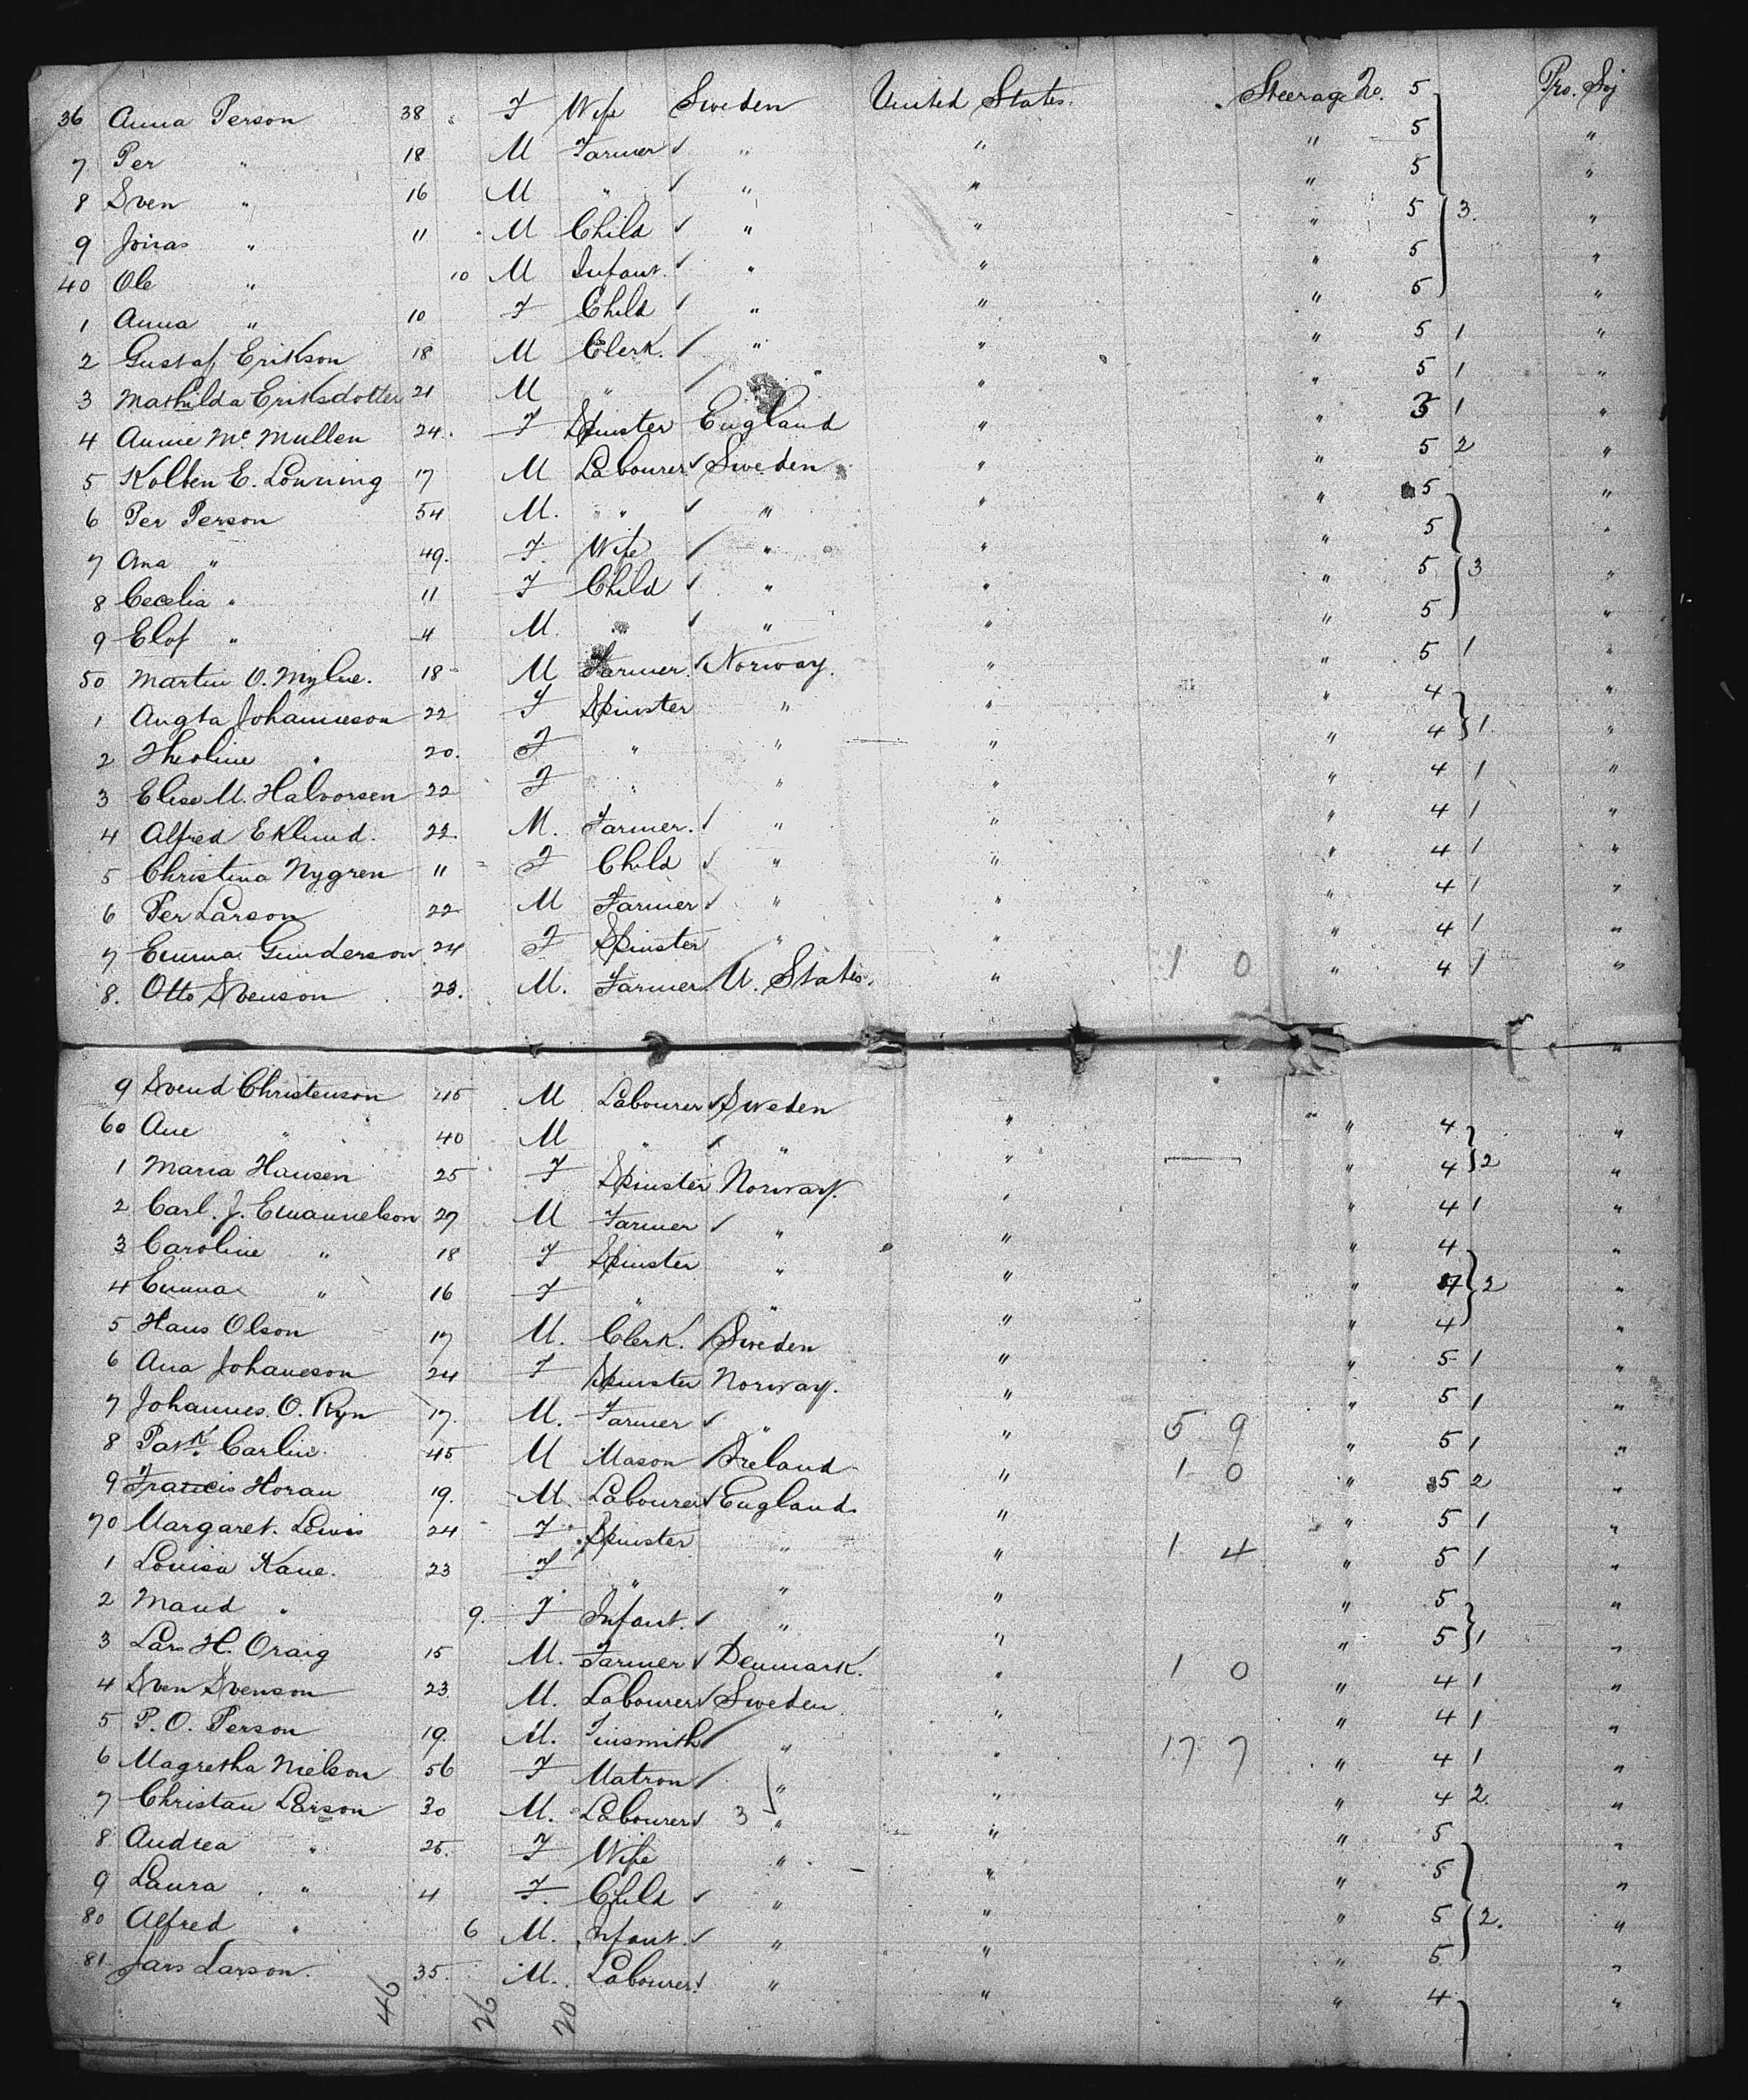 36 Anna Person 38 F Wife Sweden United States. Steerage No. 5 Pro. Soj
7 Per " 18 M Farmer ✓ " " " 5 "
8 Sven " 16 M " ✓ " " " 5 "
9 Jonas " 11 M Child ✓ " " " 5 3. "
40 Ole " 10 M Infant. ✓ " " " 5 "
1 Anna " 10 F Child ✓ " " " 5 "
2 Gustaf Erikson 18 M Clerk. ✓ " " " 5 1 "
3 Mathilda Eriksdotter 21 M " ✓ " " " 5 1 "
4 Annie Mc Mullen 24. F Spinster England " " 5 1 "
5 Kolben E. Lonning 17 M Labourer ✓ Sweden " " 5 2 "
6 Per Person 54 M. " ✓ " " " 5 "
7 Ana " 49. F. Wife ✓ " " " 5 "
8 Cecelia " 11 F Child ✓ " " " 5 3 "
9 Elof " 4 M. " ✓ " " " 5 "
50 Martin O. Mylne. 18 M Farmer. ✓ Norway. " " 5 1 "
1 Augta Johanneson 22 F Spinster " " " 4 "
2 Theoline " 20. F " " " " 4 1. "
3 Elise M. Halvorsen 22 F " " " " 4 1 "
4 Alfred Eklund. 22. M. Farmer. ✓ " " " 4 1 "
5 Christina Nygren 11 F Child ✓ " " " 4 1 "
6 Per Larson 22 M Farmer ✓ " " " 4 1 "
7 Emma Gunderson 24 F Spinster " " " 4 1 "
8. Otto Svenson 23. M. Farmer U. States. " 1 0 " 4 1 "
9 Svend Christenson 45 M Labourer ✓ Sweden " " 4 "
60 Ane " 40 M " ✓ " " " 4 2 "
1 Maria Hansen 25 F Spinster Norway. " " 4 1 "
2 Carl. J. Emanuelson 27 M Farmer ✓ " " " 4 "
3 Caroline " 18 F Spinster " " " 4 2 "
4 Emma " 16 F " " " " 4 "
5 Hans Olson 17 M. Clerk. ✓ Sweden " " 5 1 "
6 Ana Johaneson 24 F Spinster Norway. " " 5 1 "
7 Johannes. O. Ryn 17. M. Farmer ✓ " " 5 9 " 5 1 "
8 Patk. Carlin. 45 M Mason ✓ Ireland " 1 0 " 5 2 "
9 Francis Horan 19. M. Labourer ✓ England. " " 5 1 "
70 Margaret. Lewis 24 F Spinster " " 1 4 " 5 1 "
1 Louisa Kane. 23 F " " " " 5 "
2 Maud " 9. F Infant. ✓ " " " 5 1 "
3 Lars H. Oraig 15 M. Farmer ✓ Denmark. " 1 0 " 4 1 "
4 Sven Svenson 23. M. Labourer ✓ Sweden " " 4 1 "
5 P. O. Person 19. M. Tinsmith ✓ " " 17 7 " 4 1 "
6 Magretha Nielson 56 F Matron ✓ " " " 4 2. "
7 Christan Larson 30 M. Labourer ✓ 3 " " " 5 "
8 Andrea " 25. F Wife " " " 5 "
9 Laura " 4 F. Child ✓ " " " 5 2. "
80 Alfred " 6 M. Infant. ✓ " " " 5 "
81 Lars Larson. 35. M. Labourer ✓ " " " 4 "
46 26 20